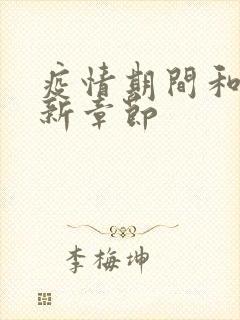 疫情期間和
新章節
李梅坤